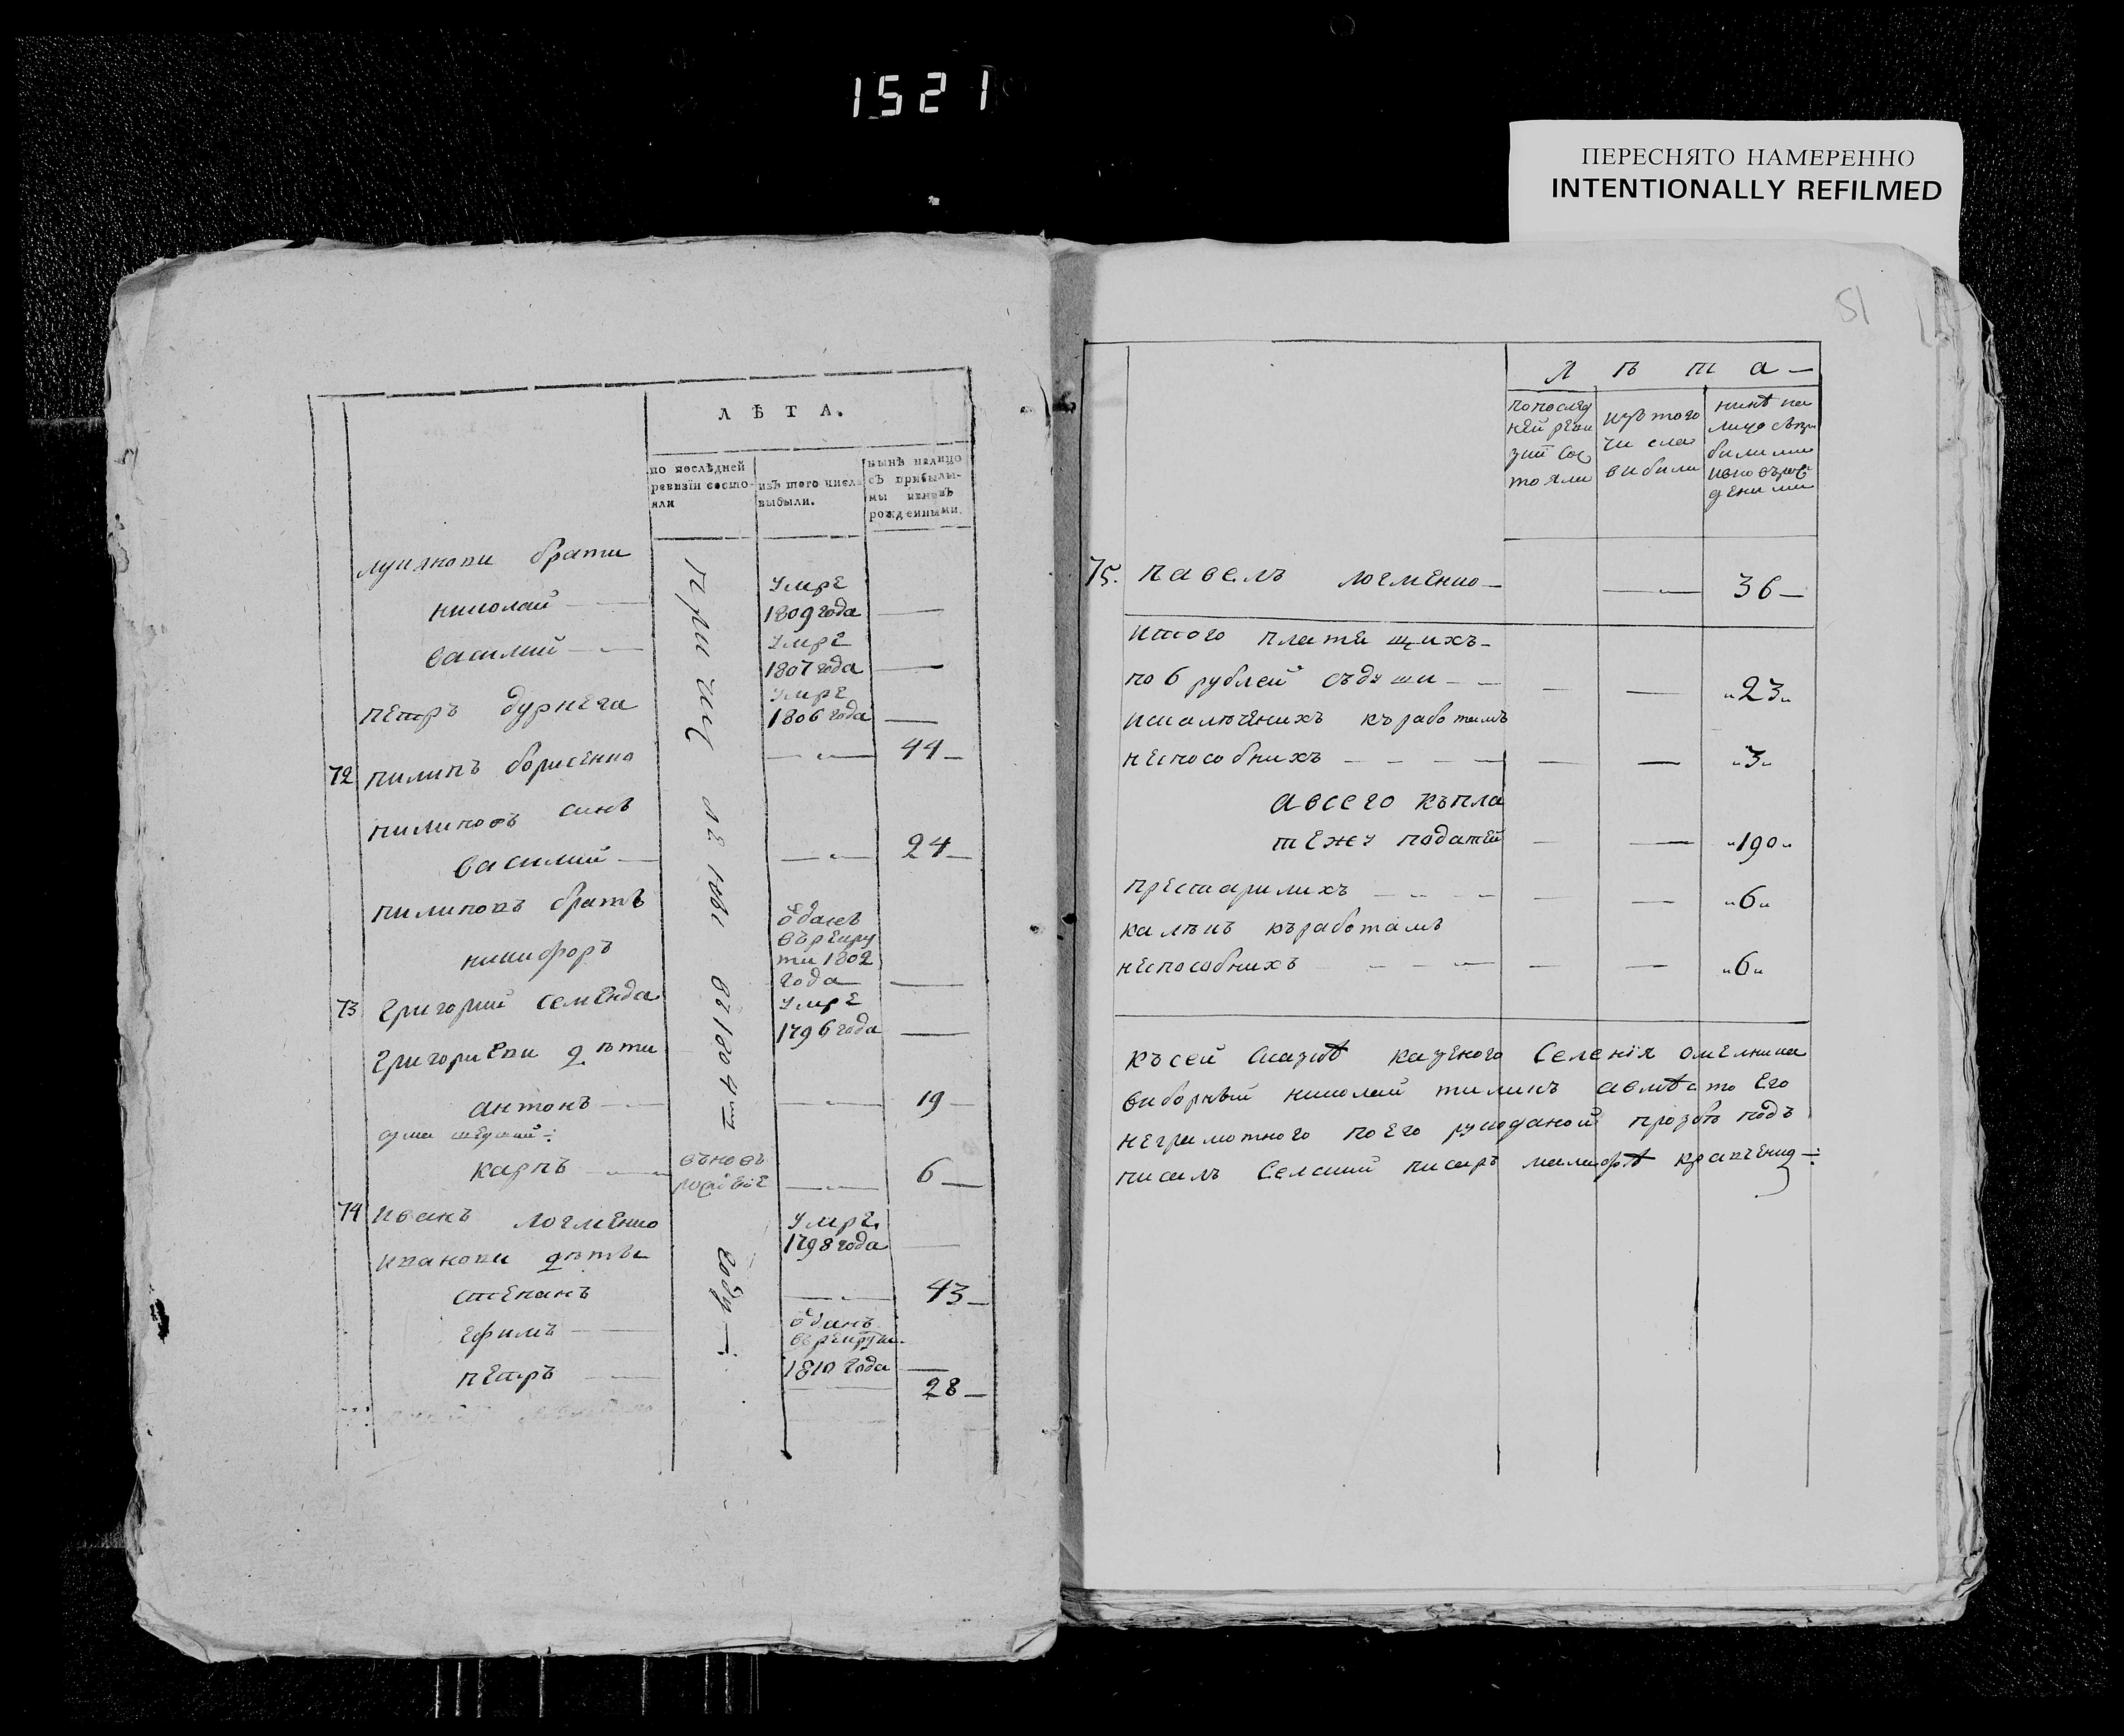 1521
ПЕРЕСНЯТО НАМЕРЕННО
INTENTIONALLY REFILMED
ЛѢТА.
по послѣдней
ревизіи состо-
яли
изъ того числа
выбыли.
нынѣ налицо
съ прибылы-
ми иновъ
рожденными.
брати
николай
умре
1809 года
василий
умре
1807 года
петръ дурнега
умре
1806 года
72 пилипъ борисенко
44
пилиповъ синъ
василий
24
пилиповъ братъ
никифоръ
ѿданъ
въ рекру
ти 1802
года
73 григорий семенда
умре
1796 года
григориеви дѣти
антонъ
19
карпъ
въновъ
6
74 иванъ логменко
умре
1798 года
иванови дѣти
степанъ
43
ефимъ
ѿданъ
въ рекрути
1810 года
петръ
28
51
лѣта
попослед
ней реви
зии сос
тояли
изъ того
числа
вибили
нинѣ на
лицо съпри
билими
ивновърож
деними
75. павелъ логменко
36
итого платящихъ
по 6 рублей съдуши
"23"
къработамъ
неспособнихъ
"3"
авсего къпла
тежу податей
"190"
престарилихъ
"6"
калѣкъ къработамъ
неспособнихъ
"6"
късей сказкѣ казеного селенія омелника
виборный николай пилипъ авмѣсто его
неграмотного поего рукоданой прозбѣ подъ
писалъ селский писаръ